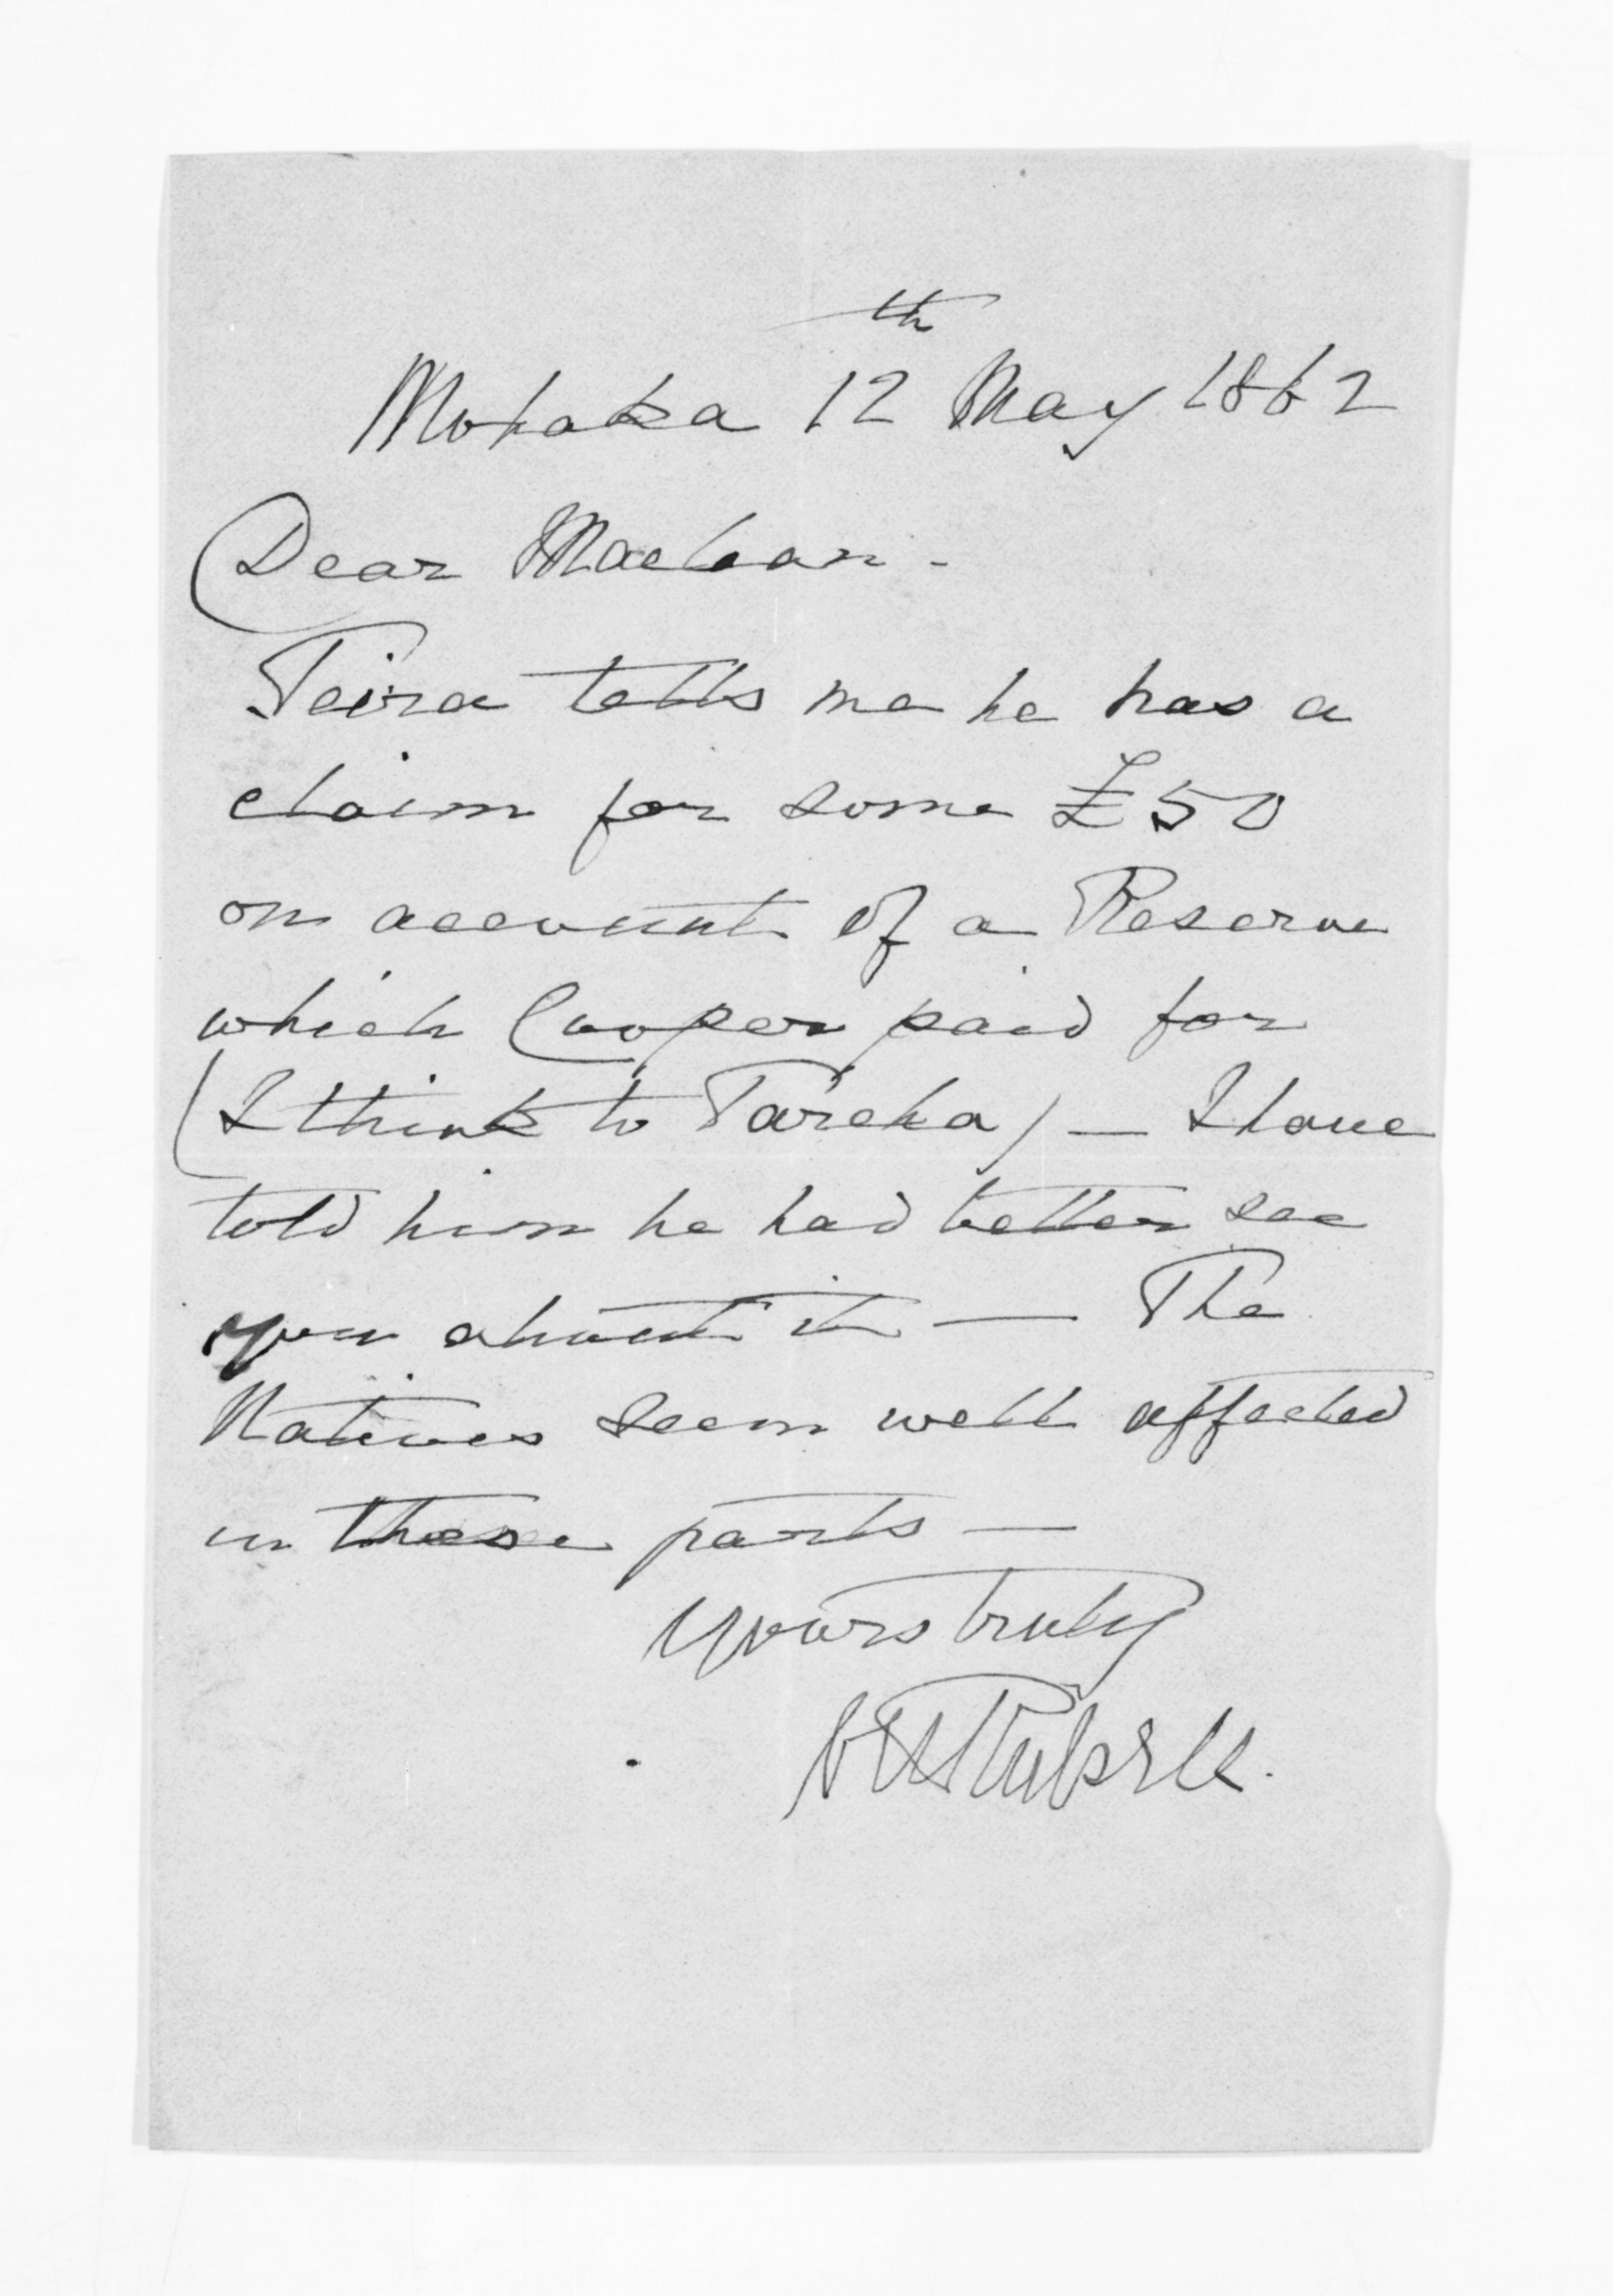 Mohaka 12th May 1862
Dear Maclean -
Teira tells me he has a
claim for some £50
on account of a Reserve
which Cooper paid for
(I think to Tareha) — I have
told him he had better see
you about it — The
Natives seem well affected
in these parts —
Yours truly